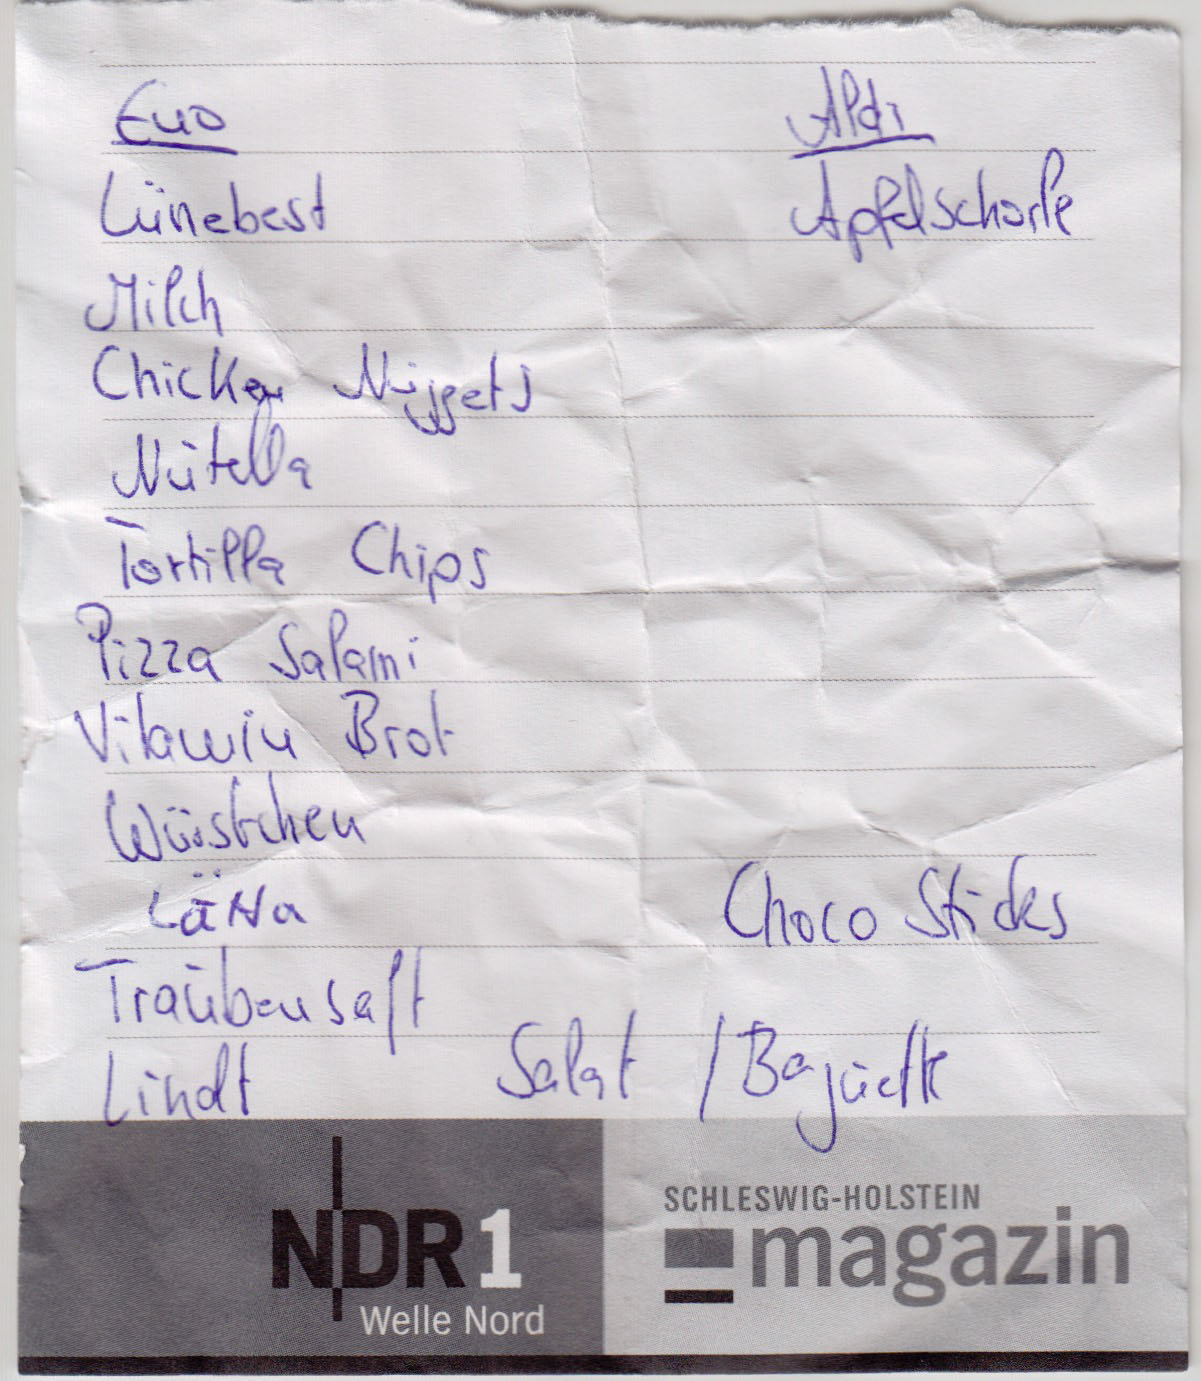 Euo Aldi
Lünebest Apfelschorle
Milch
Chicken Nuggets
Nutella
Tortilla Chips
Pizza Salami
Vitamin Brot
Würstchen
Lätta Choco Sticks
Traubensaft
Lindt Salat / Baguette
NDR 1 SCHLESWIG-HOLSTEIN
Welle Nord magazin